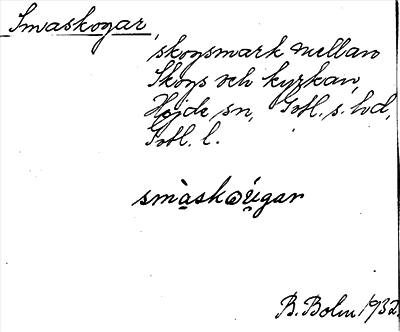 Smaskogar,
skogsmark mellan
Skogs och kyrkan,
Hejde sn, Gotl. s. hd,
Gotl. l.
smàskoúgar
B. Bolin 1932.